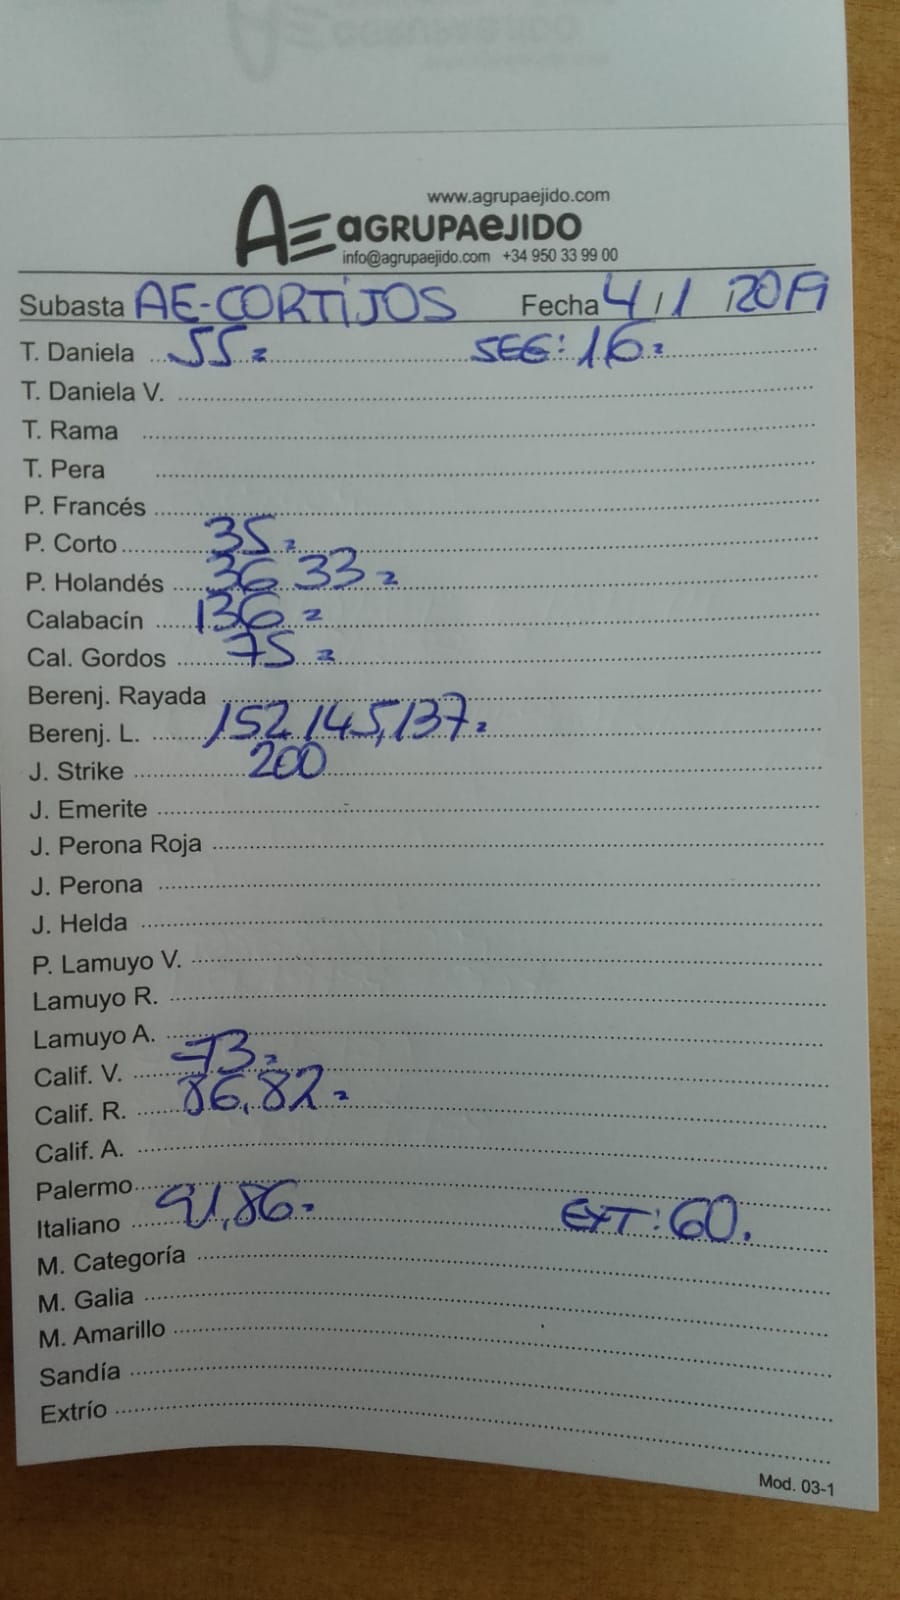 www.agrupaejido.com
AE aGRUPAeJIDO
info@agrupaejido.com +34 950 33 99 00
Subasta AE-CORTIJOS Fecha 4/1/2019
T. Daniela 55 SEG: 16
T. Daniela V.
T. Rama
T. Pera
P. Francés
P. Corto 35
P. Holandés 36 33
Calabacín 136
Cal. Gordos 75
Berenj. Rayada
Berenj. L. 152,145,137
J. Strike 200
J. Emerite
J. Perona Roja
J. Perona
J. Helda
P. Lamuyo V.
Lamuyo R.
Lamuyo A.
Calif. V. 73
Calif. R. 86,82
Calif. A.
Palermo
Italiano 91,86 EXT: 60.
M. Categoría
M. Galia
M. Amarillo
Sandía
Extrío
Mod. 03-1